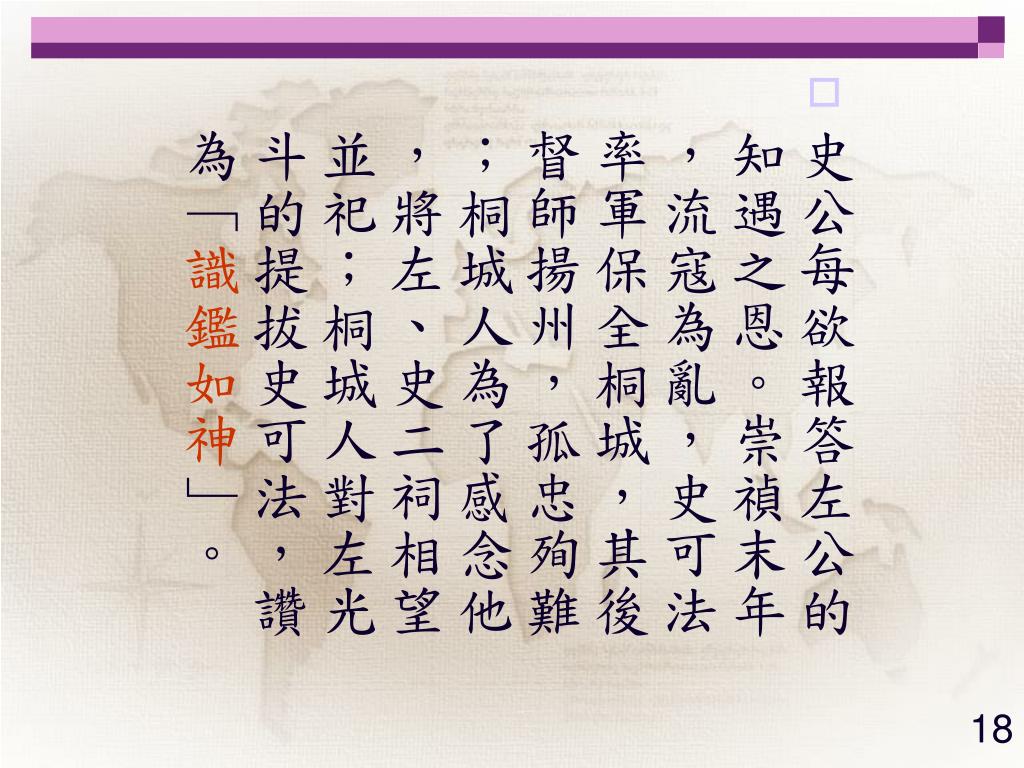 史公每欲報答左公的
知遇之恩。崇禎末年
，流寇為亂，史可法
率軍保全桐城，其後
督師揚州，孤忠殉難
；桐城人為了感念他
，將左、史二祠相望
並祀；桐城人對左光
斗的提拔史可法，讚
為「識鑑如神」。
18